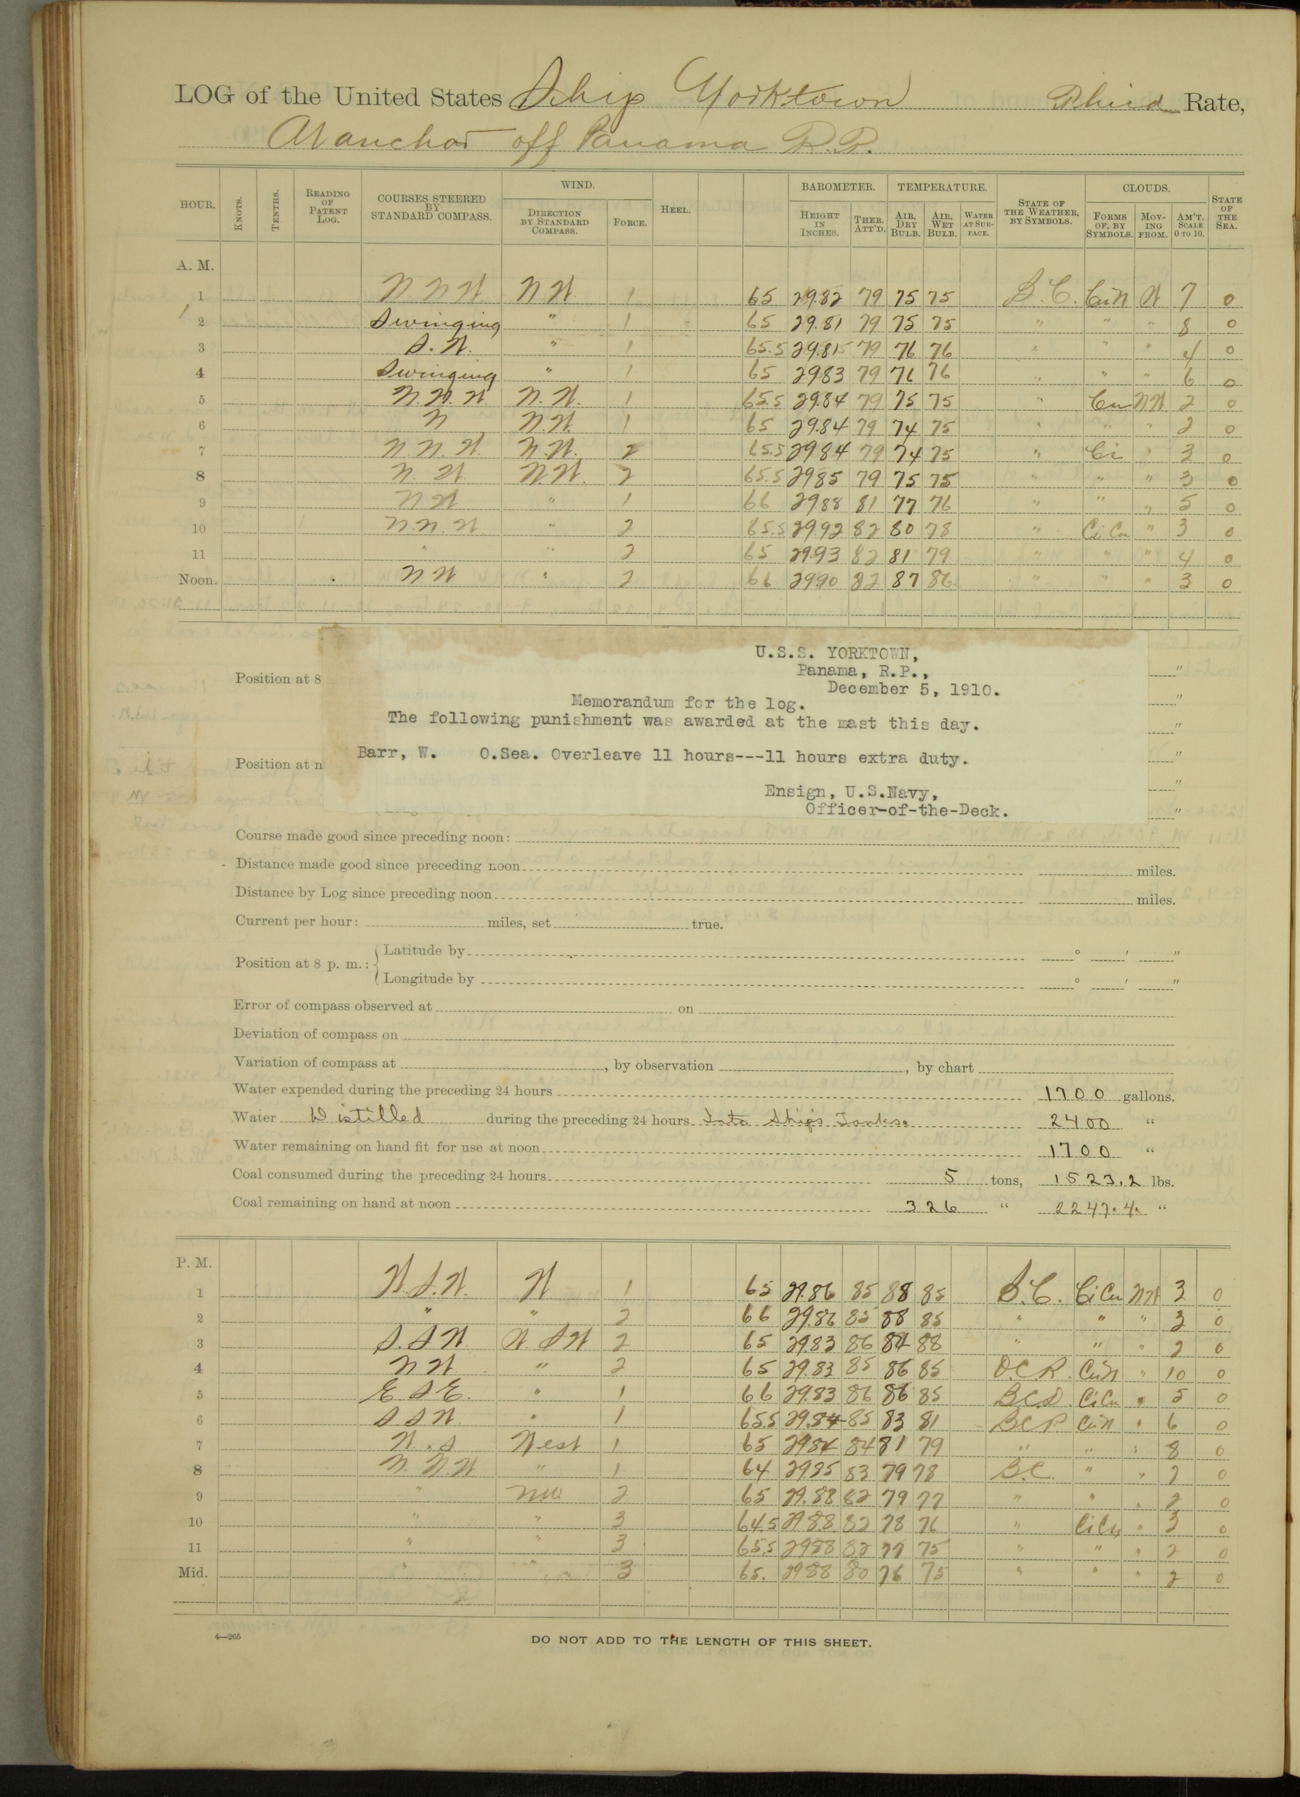 LOG of the United States Ship Yorktown Third Rate,
At anchor off Panama R.P.
HOUR. KNOTS. TENTHS. READING OF PATENT LOG. COURSES STEERED BY STANDARD COMPASS. WIND. DIRECTION BY STANDARD COMPASS. FORCE. HEEL. BAROMETER. HEIGHT IN INCHES. THER. ATT'D. TEMPERATURE. AIR, DRY BULB. AIR, WET BULB. WATER AT SURFACE. STATE OF THE WEATHER, BY SYMBOLS. CLOUDS. FORMS OF, BY SYMBOLS. MOVING FROM. AM'T. SCALE 0 TO 10. STATE OF THE SEA.
A. M.
1 N N W N W 1 65 29.82 79 75 75 B. C. Cu N W 7 0
2 Swinging " 1 65 29.81 79 75 75 " " " 8 0
3 S. W. " 1 65.5 29.815 79 76 76 " " " 4 0
4 Swinging " 1 65 29.83 79 76 76 " " " 6 0
5 N. N. W N. W. 1 65.5 29.84 79 75 75 " Cu NW 2 0
6 N N.W. 1 65 29.84 79 74 75 " " " 2 0
7 N N. W. N.W. 2 65.5 29.84 79 74 75 " Ci " 3 0
8 N. W. N W. 2 65.5 29.85 79 75 75 " " " 3 0
9 N W " 1 66 29.88 81 77 76 " " " 5 0
10 N. N. W " 2 65.5 29.92 82 80 78 " Ci Cu " 3 0
11 " " 2 65 29.93 82 81 79 " " " 4 0
Noon. N W " 2 66 29.90 82 87 86 " " " 3 0
U.S.S. YORKTOWN,
Panama, R.P.,
December 5, 1910.
Memorandum for the log.
The following punishment was awarded at the mast this day.
Barr, W. O.Sea. Overleave 11 hours---11 hours extra duty.
Ensign, U.S.Navy,
Officer-of-the-Deck.
Position at 8
Position at n
Course made good since preceding noon:
Distance made good since preceding noon miles.
Distance by Log since preceding noon miles.
Current per hour: miles, set true.
Position at 8 p. m.: Latitude by ° ' "
Longitude by ° ' "
Error of compass observed at on
Deviation of compass on
Variation of compass at , by observation , by chart
Water expended during the preceding 24 hours 1700 gallons.
Water Distilled during the preceding 24 hours Into Ship's Tanks. 2400 "
Water remaining on hand fit for use at noon 1700 "
Coal consumed during the preceding 24 hours 5 tons, 1523.2 lbs.
Coal remaining on hand at noon 326 " 2247.4. "
P. M.
1 W. S. W. W 1 65 29.86 85 88 85 B. C. Ci Cu NW 3 0
2 " " 2 66 29.86 85 88 85 " " " 3 0
3 S. S W W. S W 2 65 29.83 86 84 88 " " " 2 0
4 N W " 2 65 29.83 85 86 85 O.C.R. Cu N " 10 0
5 E S E. " 1 66 29.83 86 86 85 Ci Cu " 5 0
6 S S W " 1 65.5 29.84 85 83 81 Cu N " 6 0
7 West 1 65 29.84 84 81 79 " " " 8 0
8 N. N W " 1 64 29.85 83 79 78 B.C. " " 7 0
9 " NW 2 65 29.88 82 79 77 " " " 2 0
10 " " 3 64.5 29.88 82 78 76 " Ci Cu " 3 0
11 " " 3 65.5 29.88 82 77 75 " " " 2 0
Mid. " " 3 65. 29.88 80 76 75 " " " 2 0
4—265
DO NOT ADD TO THE LENGTH OF THIS SHEET.